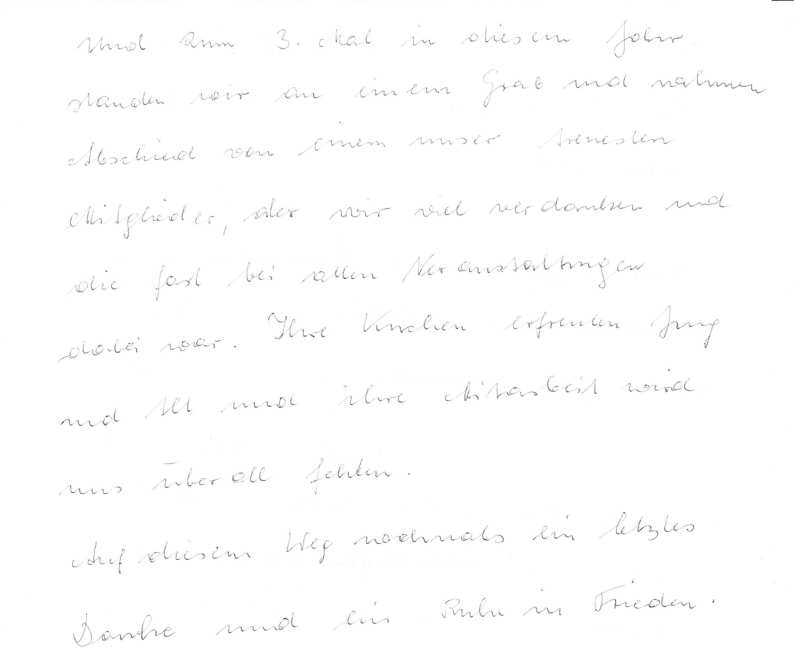 Und zum 3. Mal in diesem Jahr
standen wir an einem Grab und nahmen
Abschied von einem unser treuesten
Mitglieder, der wir viel verdanken und
die fast bei allen Veranstaltungen
dabei war. Ihre Kuchen erfreuten Jung
und Alt und ihre Mitarbeit wird
uns überall fehlen.
Auf diesem Weg nochmals ein letztes
Danke und ein Ruhe in Frieden.